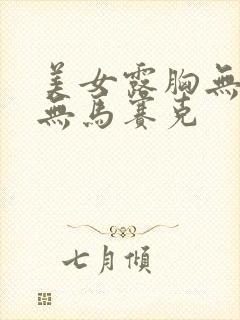 美女露胸無
無馬賽克
七月傾